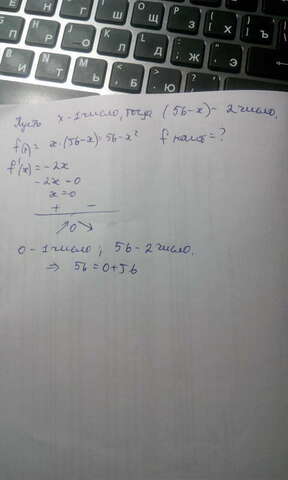 Пусть x - 1 число, тогда (56-x) - 2 число.
f(x) = x·(56-x) = 56-x² f наиб = ?
f'(x) = -2x
-2x=0
x=0
+ -
0
0 - 1 число; 56 - 2 число.
⇒ 56 = 0+56